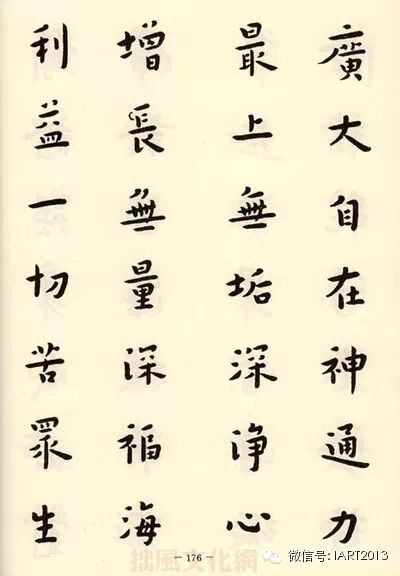 廣大自在神通力
最上無垢深净心
增長無量深福海
利益一切苦眾生
— 176 —
拙風文化網
微信号: IART2013